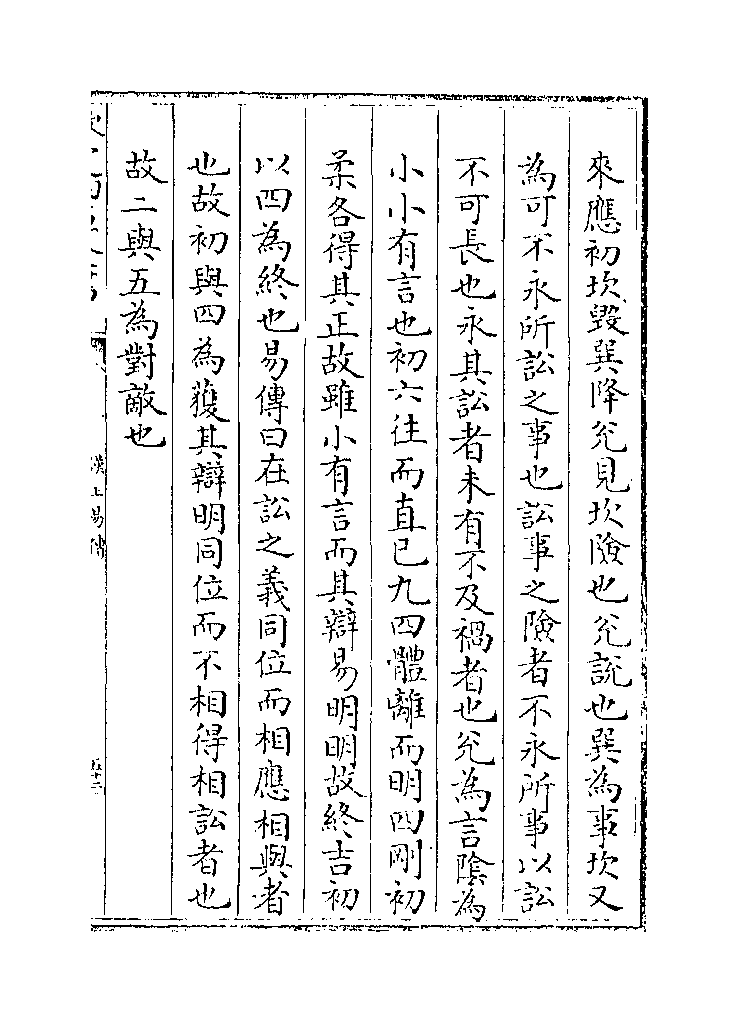 來應初坎毀巽降兊見坎險也兊說也巽為事坎又
為可不永所訟之事也訟事之險者不永所事以訟
不可長也永其訟者未有不及禍者也兊為言隂為
小小有言也初六往而直已九四體離而明四剛初
柔各得其正故雖小有言而其辯易明明故終吉初
以四為終也易傳曰在訟之義同位而相應相與者
也故初與四為獲其辯明同位而不相得相訟者也
故二與五為對敵也
漢上易傳